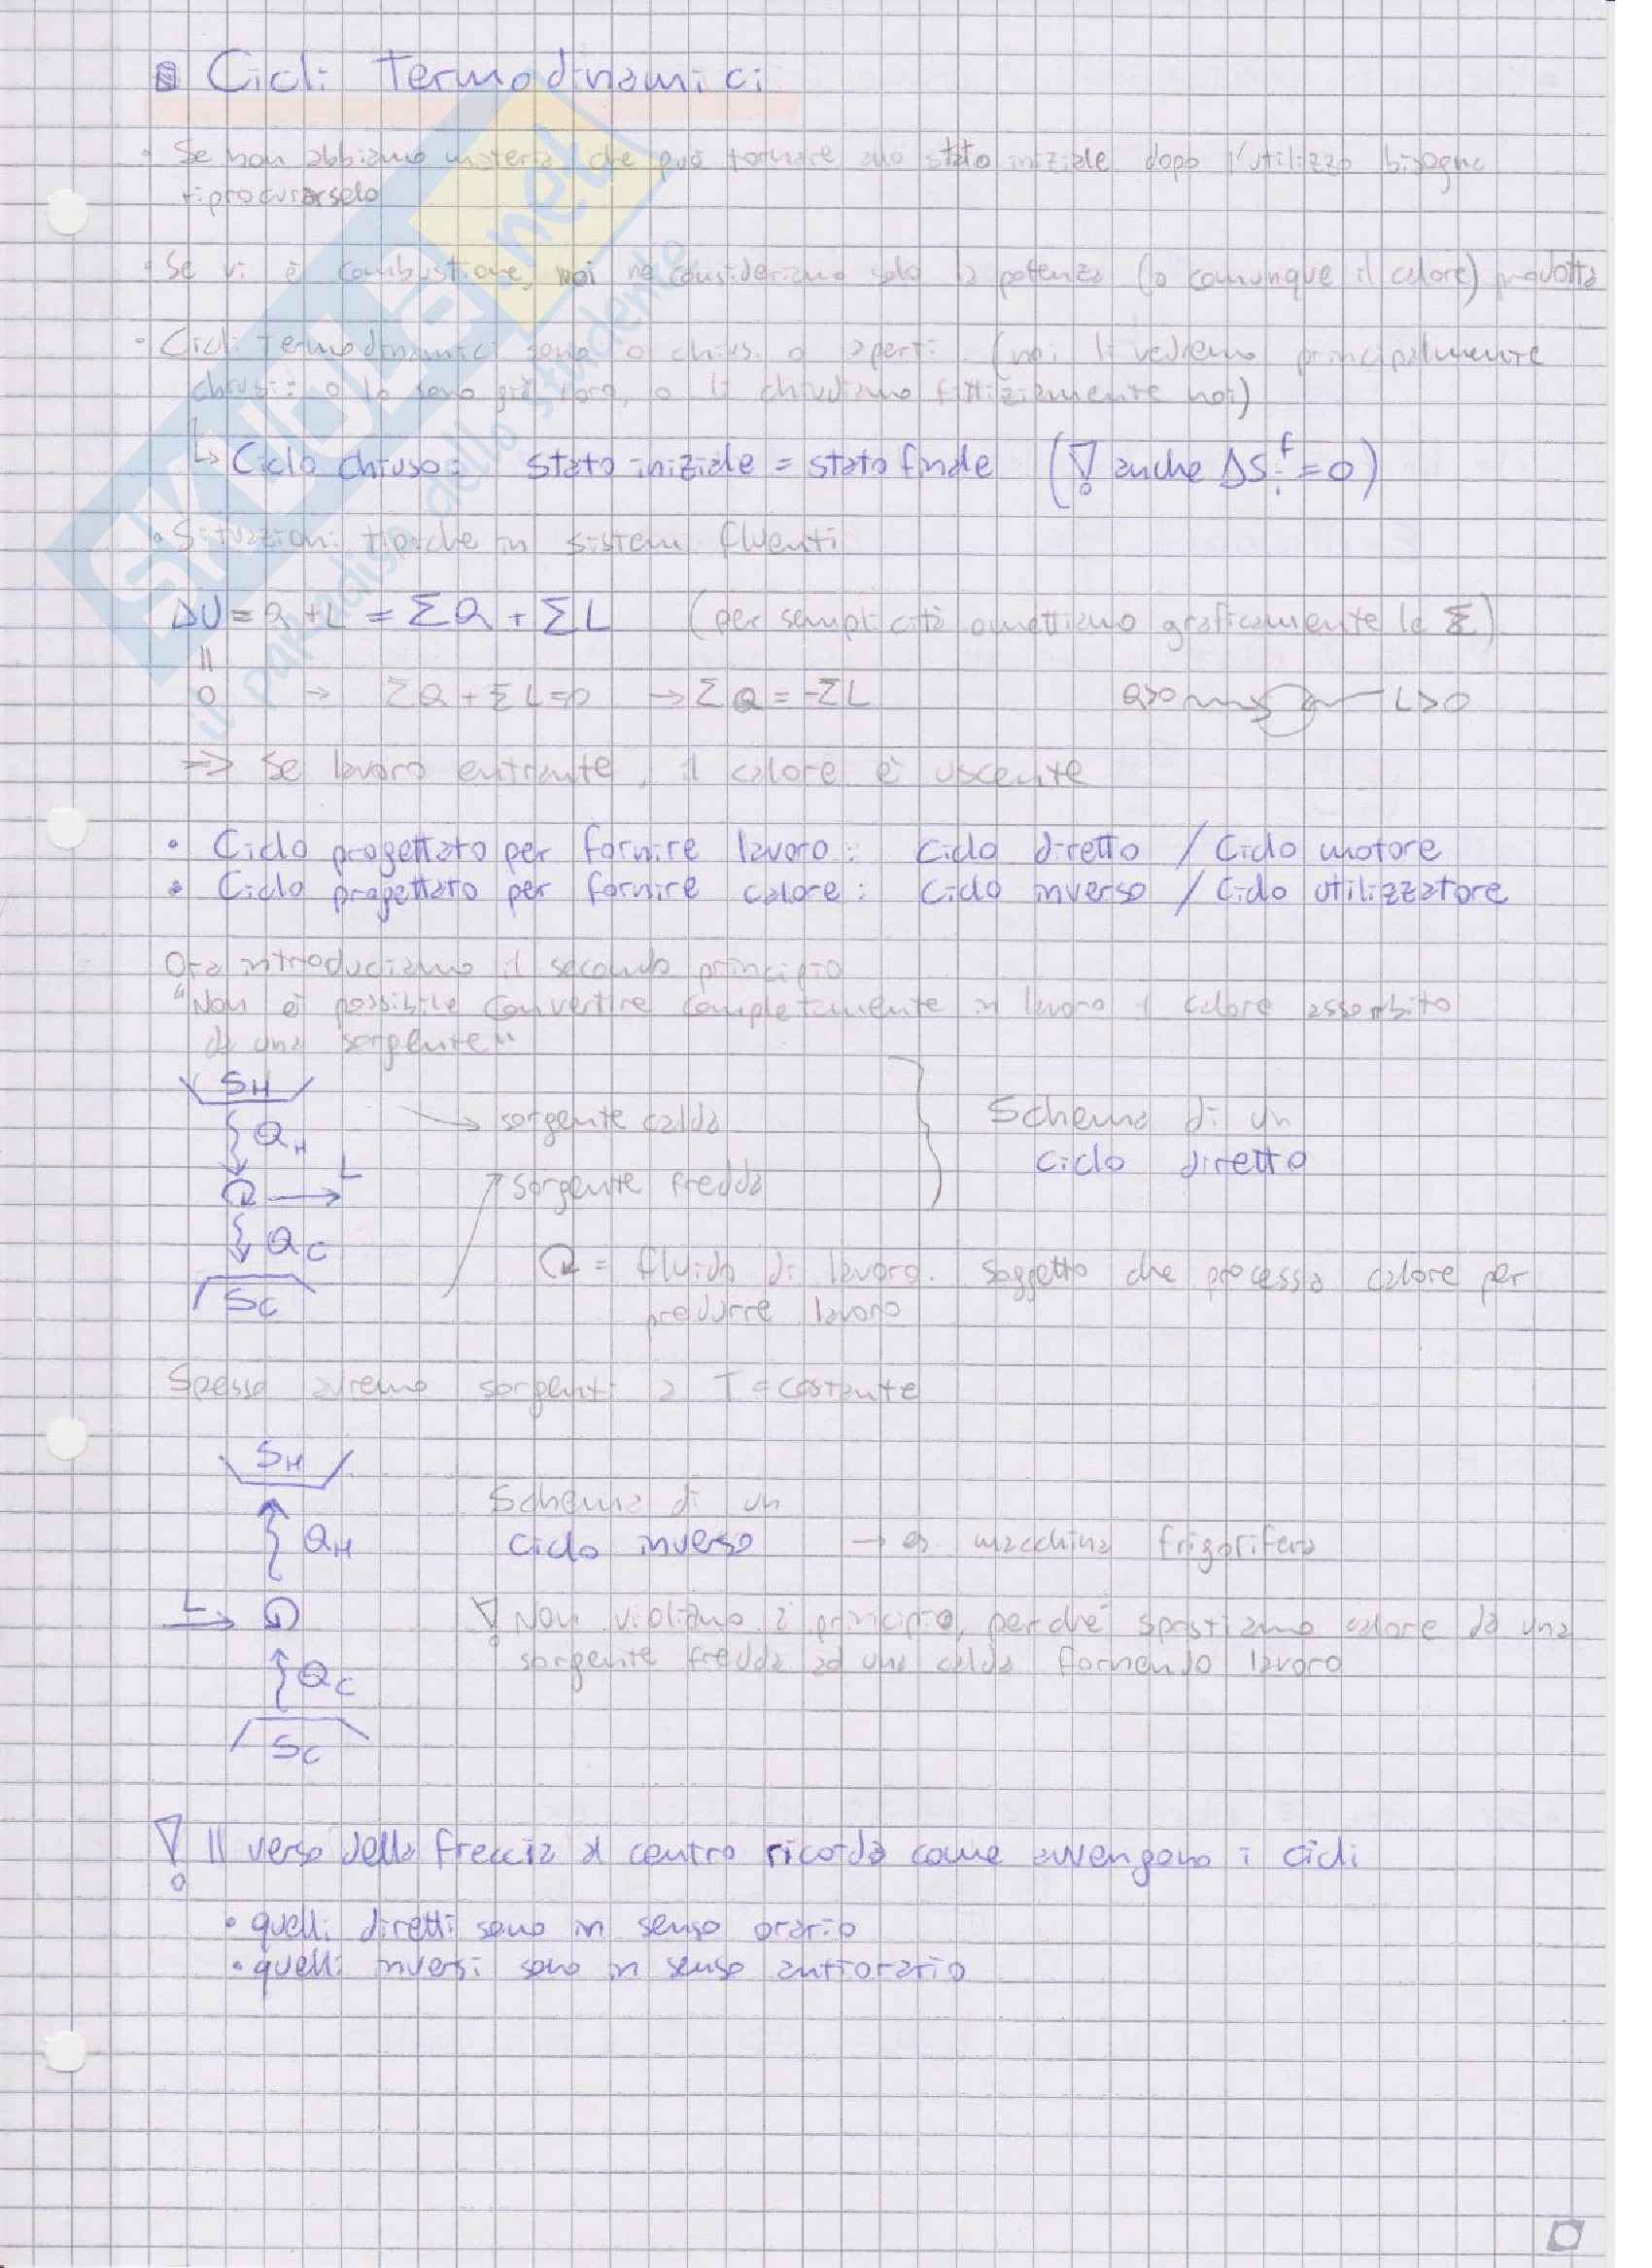 Cicli Termodinamici
• Se non abbiamo materia che può tornare allo stato iniziale dopo l'utilizzo bisogna
riprocurarselo
• Se vi è combustione, noi ne consideriamo solo la potenza (o comunque il calore) prodotta
• Cicli termodinamici sono o chiusi o aperti (noi li vedremo principalmente
chiusi: o lo sono già loro, o li chiudiamo fittiziamente noi)
↳ Ciclo chiuso: stato iniziale = stato finale (! anche ΔS_i^f = 0)
• Situazioni tipiche in sistemi fluenti
ΔU = Q + L = ΣQ + ΣL (per semplicità omettiamo graficamente le Σ)
=
0 → ΣQ + ΣL = 0 → ΣQ = -ΣL Q>0 L>0
=> Se lavoro entrante, il calore è uscente
• Ciclo progettato per fornire lavoro: Ciclo diretto / Ciclo motore
• Ciclo progettato per fornire calore: Ciclo inverso / Ciclo utilizzatore
Ora introduciamo il secondo principio
"Non è possibile convertire completamente in lavoro il calore assorbito
da una sorgente"
SH
QH
→ sorgente calda
Schema di un
ciclo diretto
L
sorgente fredda
QC
= fluido di lavoro. Soggetto che processa calore per
produrre lavoro
SC
Spesso avremo sorgenti a T = costante
SH
QH
Schema di un
ciclo inverso → es. macchina frigorifera
L
! Non violiamo 2° principio, perché spostiamo calore da una
sorgente fredda ad una calda fornendo lavoro
QC
SC
! Il verso della freccia al centro ricorda come avvengono i cicli
• quelli diretti sono in senso orario
• quelli inversi sono in senso antiorario
SKUOLA.net
il paradiso dello studente